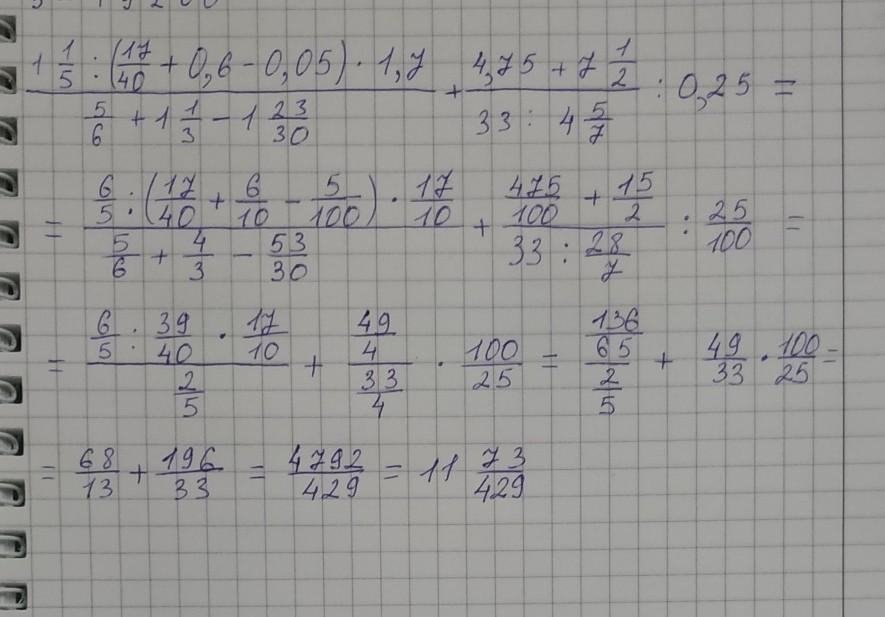 1 1/5 : (17/40 + 0,6 - 0,05) · 1,7 / (5/6 + 1 1/3 - 1 23/30) + (4,75 + 7 1/2) / (33 : 4 5/7) : 0,25 =
= (6/5 : (17/40 + 6/10 - 5/100) · 17/10) / (5/6 + 4/3 - 53/30) + (475/100 + 15/2) / (33 : 28/7) : 25/100 =
= (6/5 : 39/40 · 17/10) / (2/5) + (49/4) / (33/4) · 100/25 = (136/65) / (2/5) + 49/33 · 100/25 =
= 68/13 + 196/33 = 4792/429 = 11 73/429